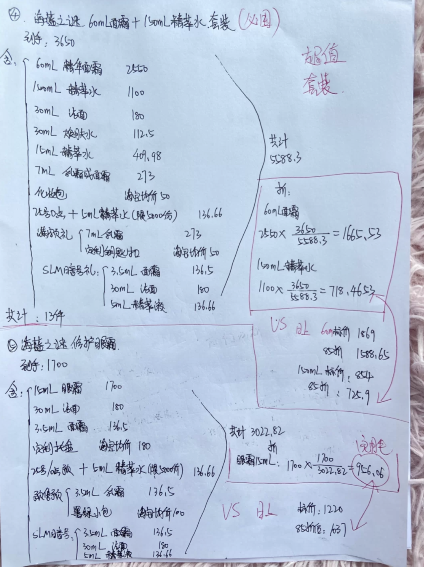 ④ 海蓝之谜 60mL面霜 + 150mL精萃水 套装 (必囤)
到手: 3650
含:
60mL 精华面霜 2550
150mL 精萃水 1100
30mL 洁面 180
30mL 112.5
15mL 精萃水 409.98
7mL 面霜 273
化妆包 淘宝均价 50
+ 5mL精萃水 (限5000份) 136.66
7mL 面霜 273
淘宝均价 50
SLM暗号礼: 3.5mL 面霜 136.5
30mL 洁面 180
5mL 精萃液 136.66
共计: 13件
超值
套装
共计
5588.3
折:
60mL面霜
2550 × 3650/5588.3 = 1665.53
150mL精萃水
1100 × 3650/5588.3 = 718.4653
VS 日上 60ml标价 1869
85折 1588.65
150mL标价: 854
85折: 725.9
海蓝之谜 修护眼霜
到手: 1700
含:
15mL 眼霜 1700
30mL 洁面 180
3.5mL 面霜 136.5
淘宝均价 180
+ 5mL精萃水 (限5000份) 136.66
3.5mL 面霜 136.5
小包 淘宝均价 100
SLM暗号: 3.5mL 面霜 136.5
30mL 洁面 180
5mL 精萃液 136.66
共计 3022.82
折
眼霜15mL: 1700 × 1700/3022.82 = 956.06
VS 日上 标价: 1220
85折价: 1037